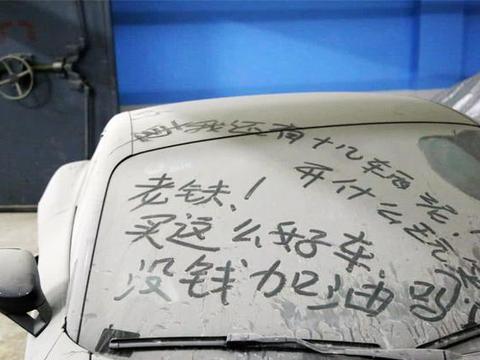 我还有十几车
开什么玩
老铁！
买这么好车，
没钱加油吗？